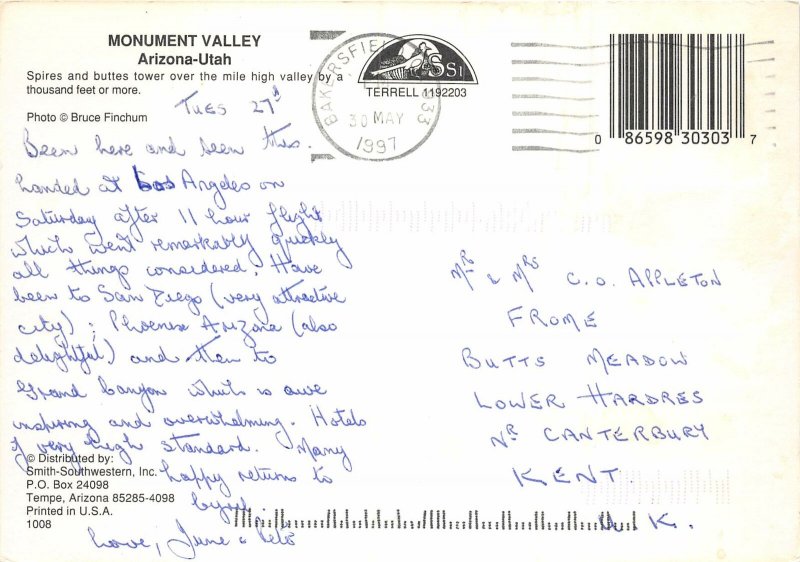 MONUMENT VALLEY
Arizona-Utah
Spires and buttes tower over the mile high valley by a
thousand feet or more.
Photo © Bruce Finchum
BAKERSFIELD 933
30 MAY
1997
SSI
TERRELL 1192203
0 86598 30303 7
TUES 27th
Been here and seen this.
Landed at Los Angeles on
Saturday after 11 hour flight
which went remarkably quickly
all things considered. Have
been to San Diego (very attractive
city); Phoenix Arizona (also
delightful) and then to
Grand Canyon which is awe
inspiring and overwhelming. Hotels
of very high standard. Many
happy returns to
Love, June & Pete
© Distributed by:
Smith-Southwestern, Inc.
P.O. Box 24098
Tempe, Arizona 85285-4098
Printed in U.S.A.
1008
MR & MRS C.O. APPLETON
FROME
BUTTS MEADOW
LOWER HARDRES
NR CANTERBURY
KENT.
U.K.